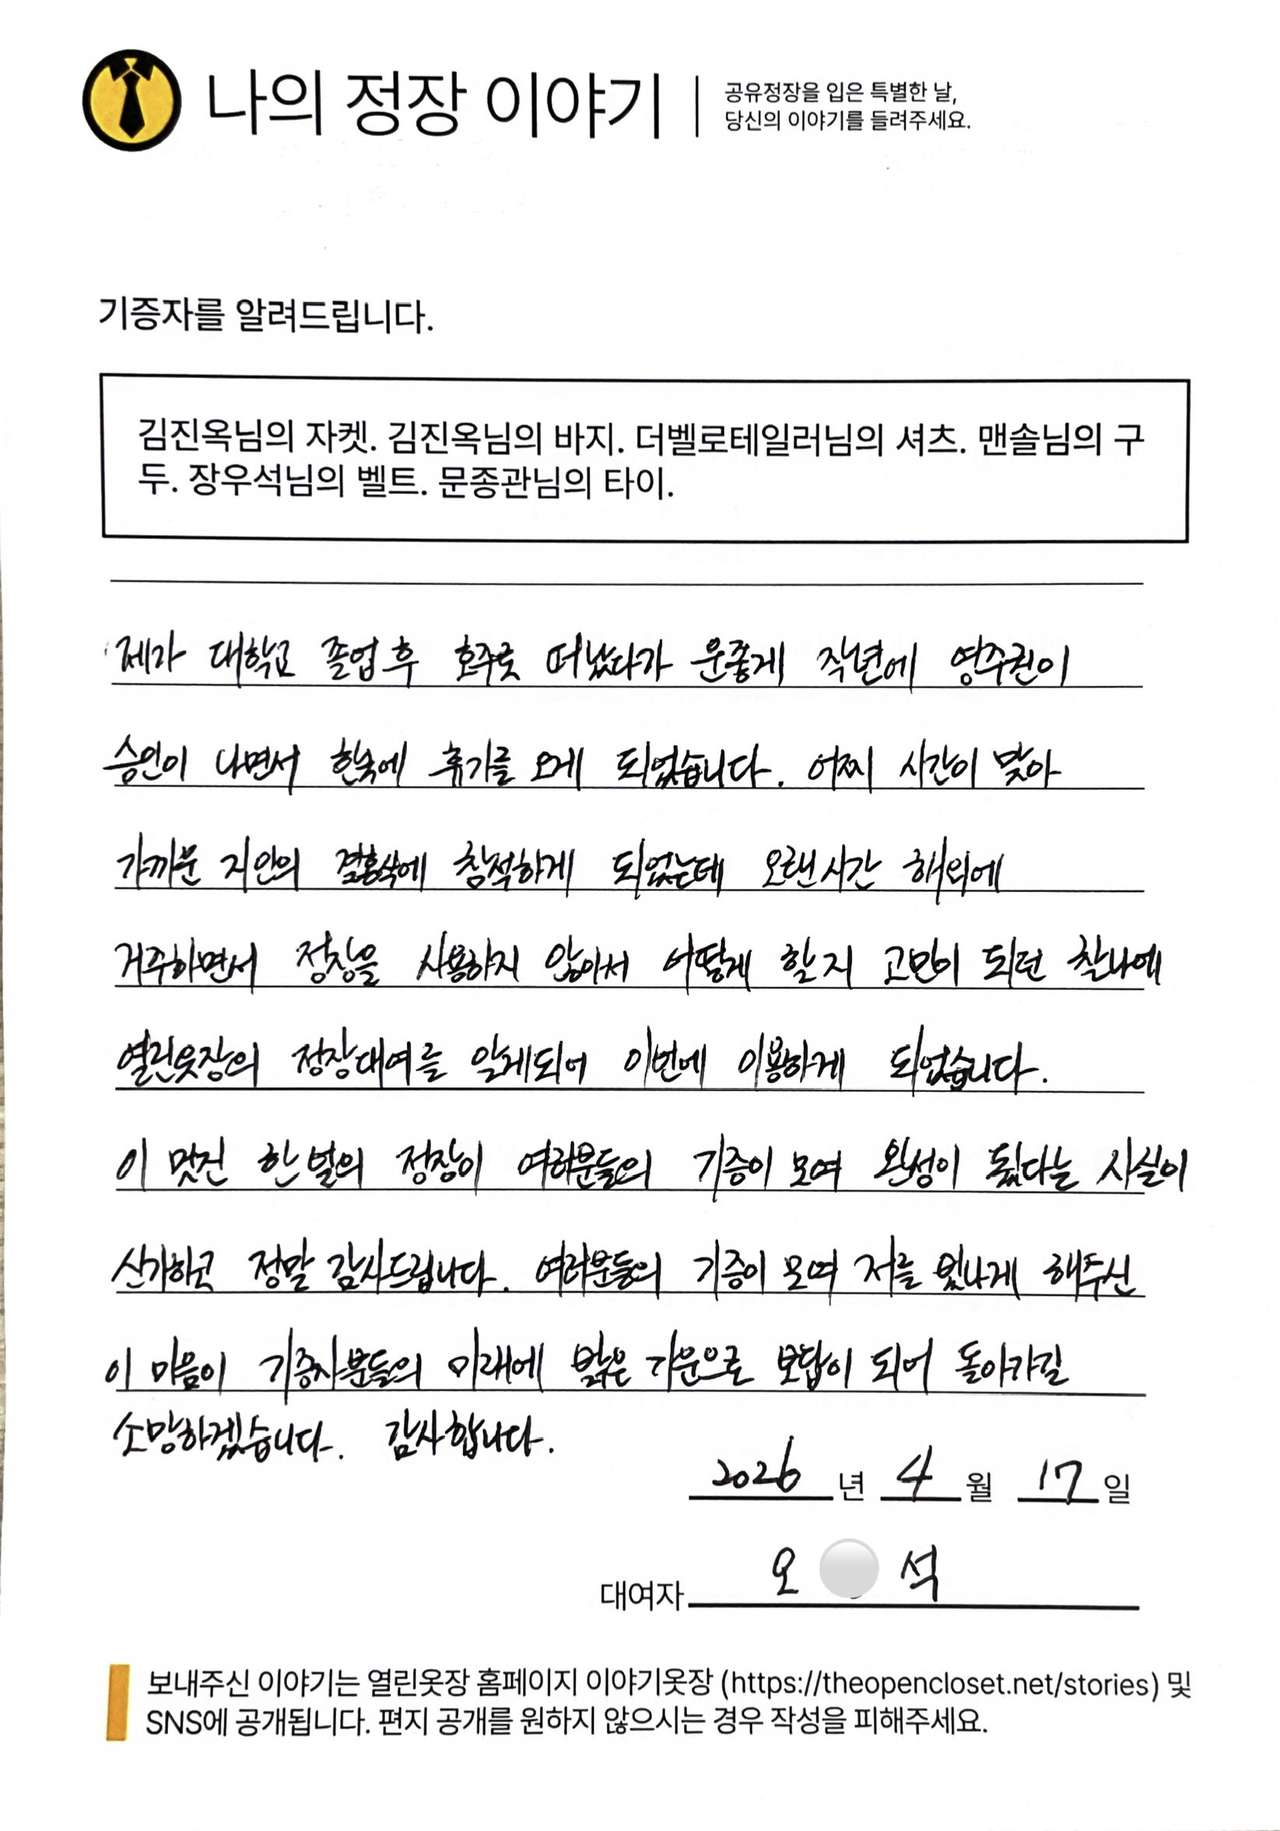 나의 정장 이야기
공유정장을 입은 특별한 날,
당신의 이야기를 들려주세요.
기증자를 알려드립니다.
김진옥님의 자켓. 김진옥님의 바지. 더벨로테일러님의 셔츠. 맨솔님의 구
두. 장우석님의 벨트. 문종관님의 타이.
제가 대학교 졸업 후 호주로 떠났다가 운좋게 작년에 영주권이
승인이 나면서 한국에 휴가를 오게 되었습니다. 어찌 시간이 맞아
가까운 지인의 결혼식에 참석하게 되었는데 오랜시간 해외에
거주하면서 정장을 사용하지 않아서 어떻게 할지 고민이 되던 찰나에
열린옷장의 정장대여를 알게되어 이번에 이용하게 되었습니다.
이 멋진 한 벌의 정장이 여러분들의 기증이 모여 완성이 됐다는 사실이
신기하고 정말 감사드립니다. 여러분들의 기증이 모여 저를 빛나게 해주신
이 마음이 기증자분들의 미래에 밝은 기운으로 보답이 되어 돌아가길
소망하겠습니다. 감사합니다.
2026 년 4 월 17 일
대여자 오 석
보내주신 이야기는 열린옷장 홈페이지 이야기옷장 (https://theopencloset.net/stories) 및
SNS에 공개됩니다. 편지 공개를 원하지 않으시는 경우 작성을 피해주세요.